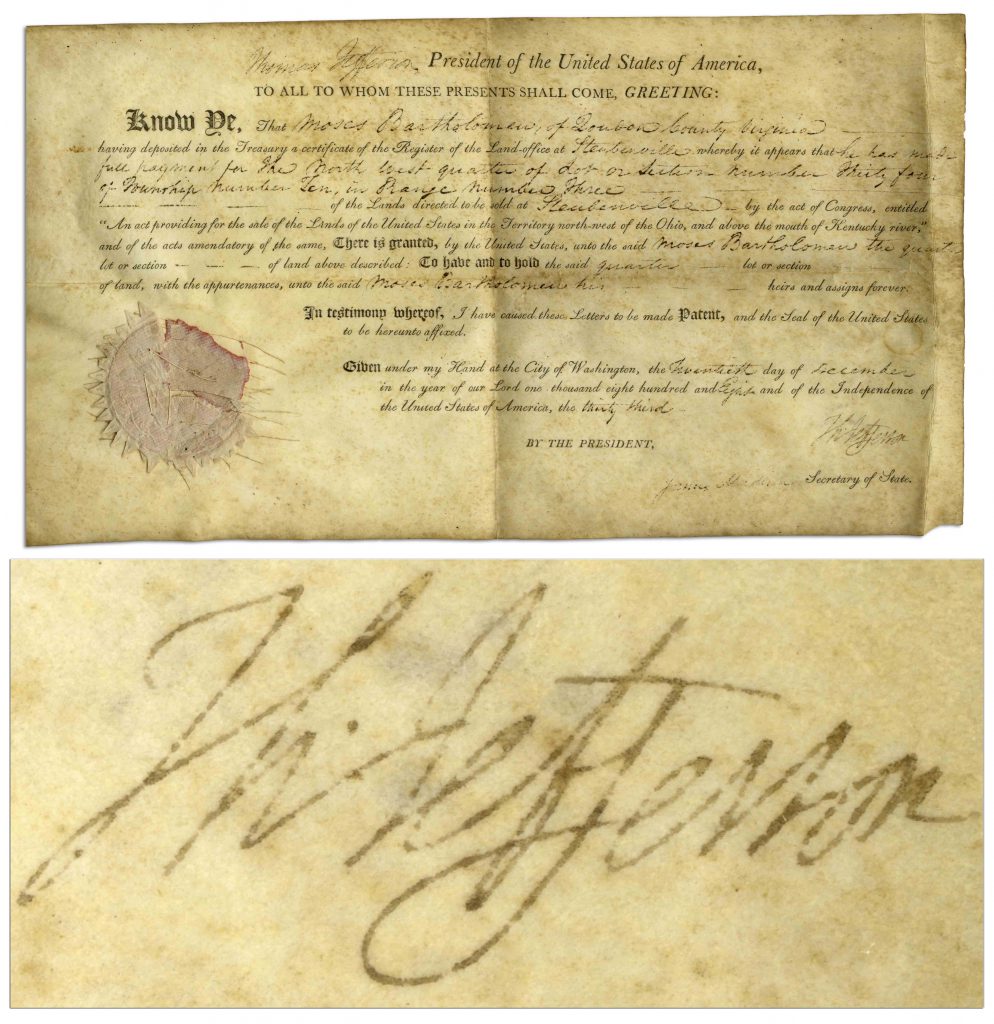 Thomas Jefferson President of the United States of America,
TO ALL TO WHOM THESE PRESENTS SHALL COME, GREETING:
Know Ye, That Moses Bartholomew, of Loudon County Virginia
having deposited in the Treasury a certificate of the Register of the Land-office at Steubenville whereby it appears that he has made
full payment for the North West quarter of Lot or Section number thirty four
of Township number Ten, in Range number Three
of the Lands directed to be sold at Steubenville by the act of Congress, entitled
"An act providing for the sale of the Lands of the United States in the Territory north-west of the Ohio, and above the mouth of Kentucky river,"
and of the acts amendatory of the same, There is granted, by the United States, unto the said Moses Bartholomew the quarter
lot or section of land above described: To have and to hold the said quarter lot or section
of land, with the appurtenances, unto the said Moses Bartholomew his heirs and assigns forever.
In testimony whereof, I have caused these Letters to be made Patent, and the Seal of the United States
to be hereunto affixed.
Given under my Hand at the City of Washington, the Twentieth day of December
in the year of our Lord one thousand eight hundred and Eight and of the Independence of
the United States of America, the thirty third
Th: Jefferson
BY THE PRESIDENT,
James Madison Secretary of State.
Th: Jefferson